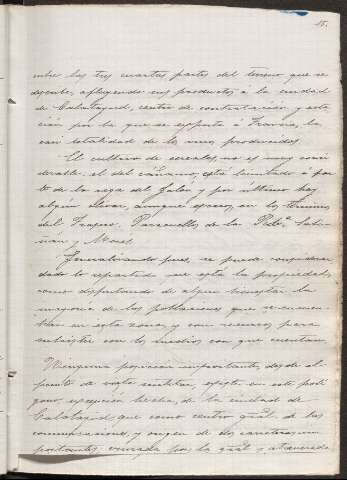 15.
entre las tres cuartas partes del terreno que se
describe, afluyendo sus productos á la ciudad
de Calatayud, centro de contratación y esta-
ción por la que se exporta á Francia, la
casi totalidad de los vinos producidos.
El cultivo de cereales, no es muy consi-
derable: el del cáñamo, está limitado á par-
te de la vega del Jalon y por último hay
algún olivar, aunque escaso, en los términos
del Frasno, Paracuellos de la Rib.ª Sabi-
ñan y Morés.
Generalizando pues, se puede considerar
dado lo repartida que está la propiedad,
como disfrutando de algún bienestar la
mayoria de las poblaciones que se encuen-
tran en esta zona, y con recursos para
subsistir con los medios con que cuentan.
Ninguna posición importante, desde el
punto de vista militar, existe en este polí-
gono, excepción hecha, de la ciudad de
Calatayud que como centro gral. de las
comunicaciones, y origen de dos carreteras im-
portantes, cruzada por la gral. y atravesada